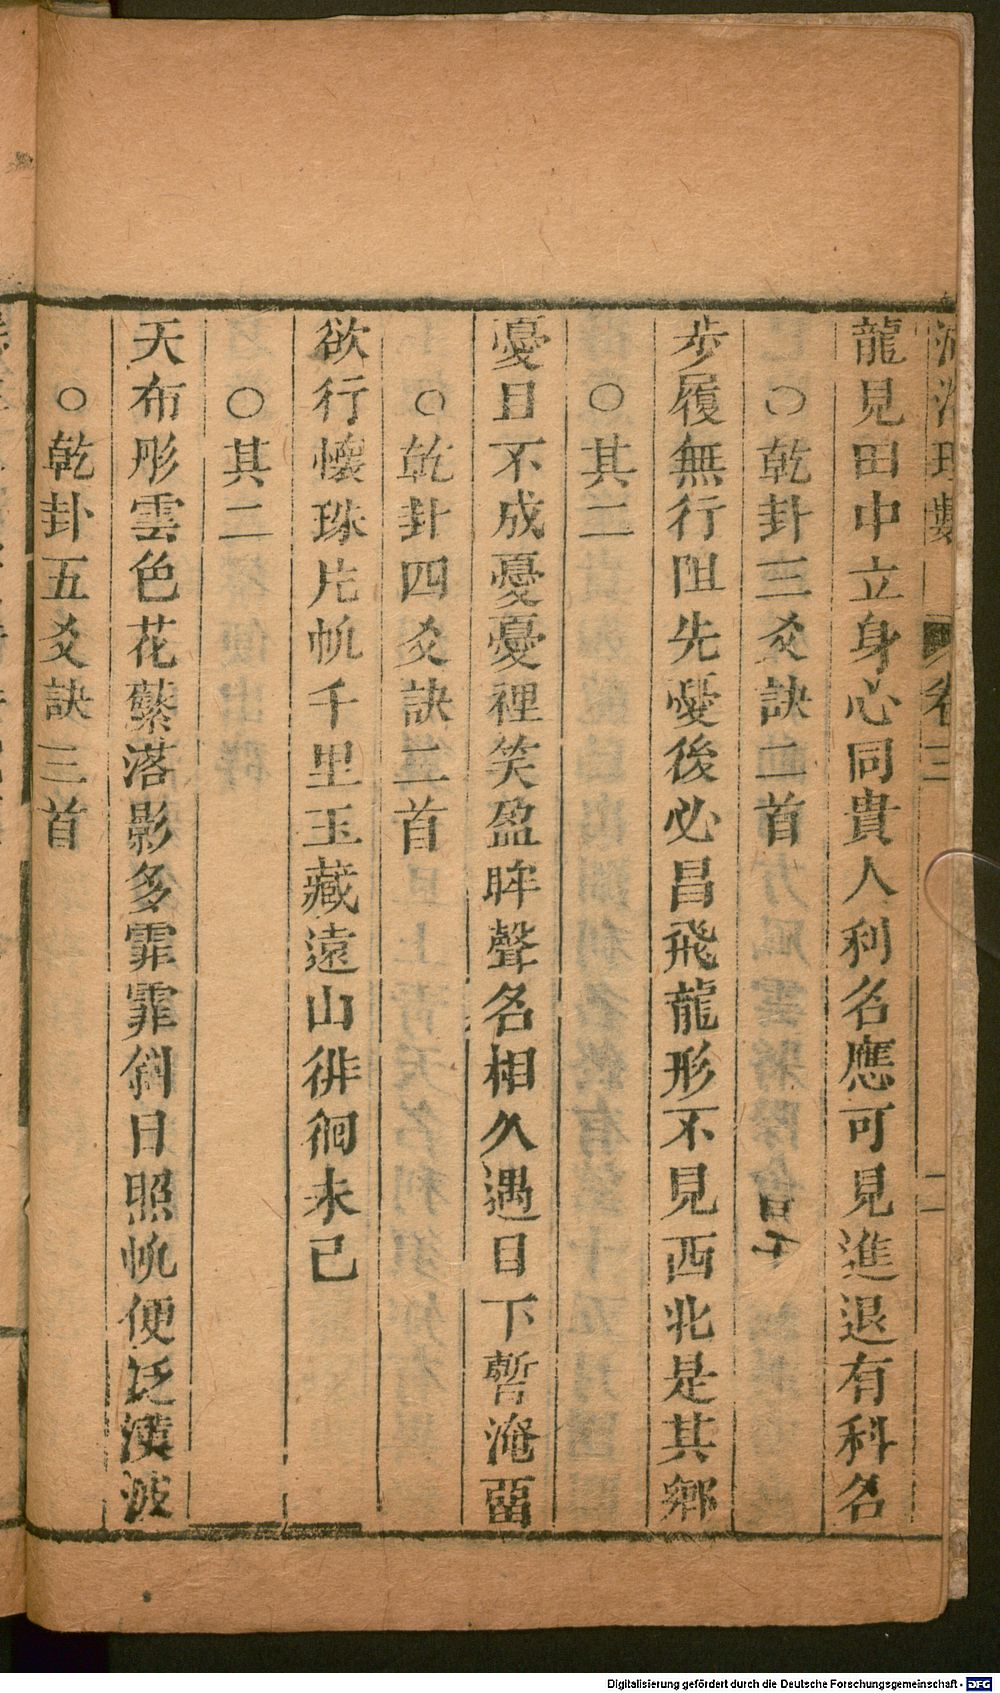 河洛理數 卷三 二
龍見田中立身心同貴人利名應可見進退有科名
○乾卦三爻訣二首
步履無行阻先憂後必昌飛龍形不見西北是其鄉
○其二
憂日不成憂憂裡笑盈眸聲名相久遇日下暫淹留
○乾卦四爻訣二首
欲行懷珠片帆千里玉藏遠山徘徊未已
○其二
天布彤雲色花蘩落影多霏霏斜日照帆便泛濆波
○乾卦五爻訣三首
Digitalisierung gefördert durch die Deutsche Forschungsgemeinschaft - DFG